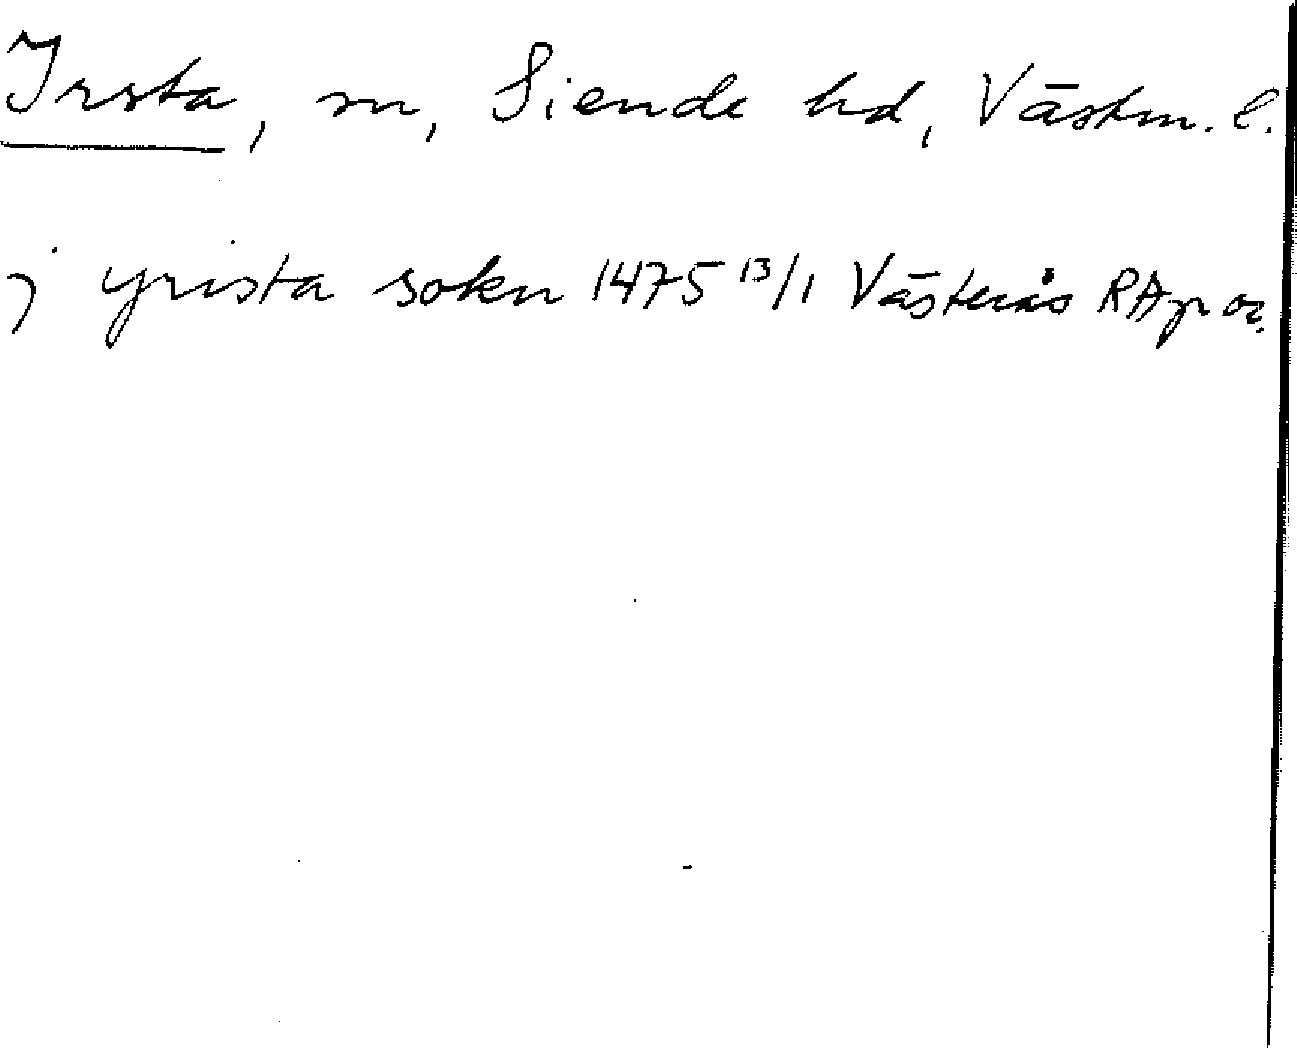 Irsta, sn, Siende hd, Västm. l.
j yrista sokn 1475 13/1 Västerås RAp or.